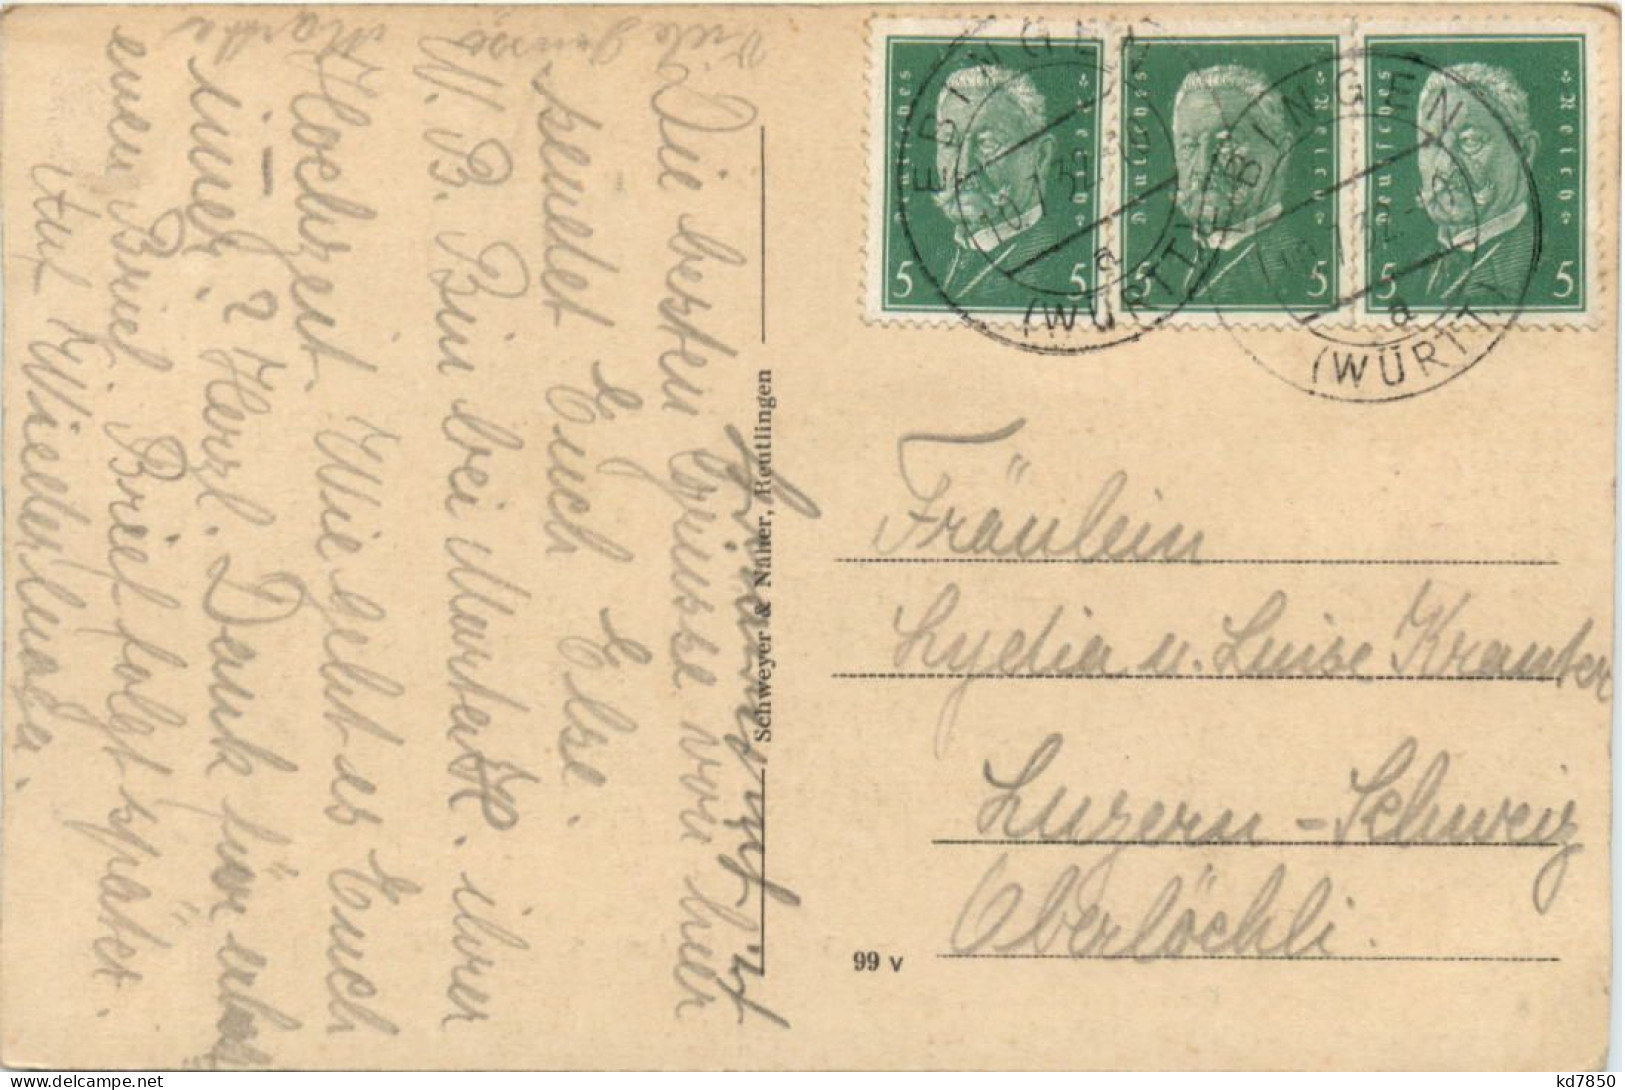 Die besten Grüsse von hier
sendet Euch Else.
W. B. Bin bei Martes H. ihrer
Hochzeit Wie geht es Euch
immer? Herzl. Dank für erhal
enen Brief. Brief folgt später.
Auf Wiedersehen.
Viele Grüsse
Martha
Schweyer & Näher, Reutlingen
Deutsches Reich
5 5
Deutsches Reich
5 5
Deutsches Reich
5 5
EBINGEN
a
(WÜRTT)
EBINGEN
a
(WÜRTT)
Fräulein
Lydia u. Luise Krauter
Luzern - Schweiz
Oberlöchli.
99 v
kd7850